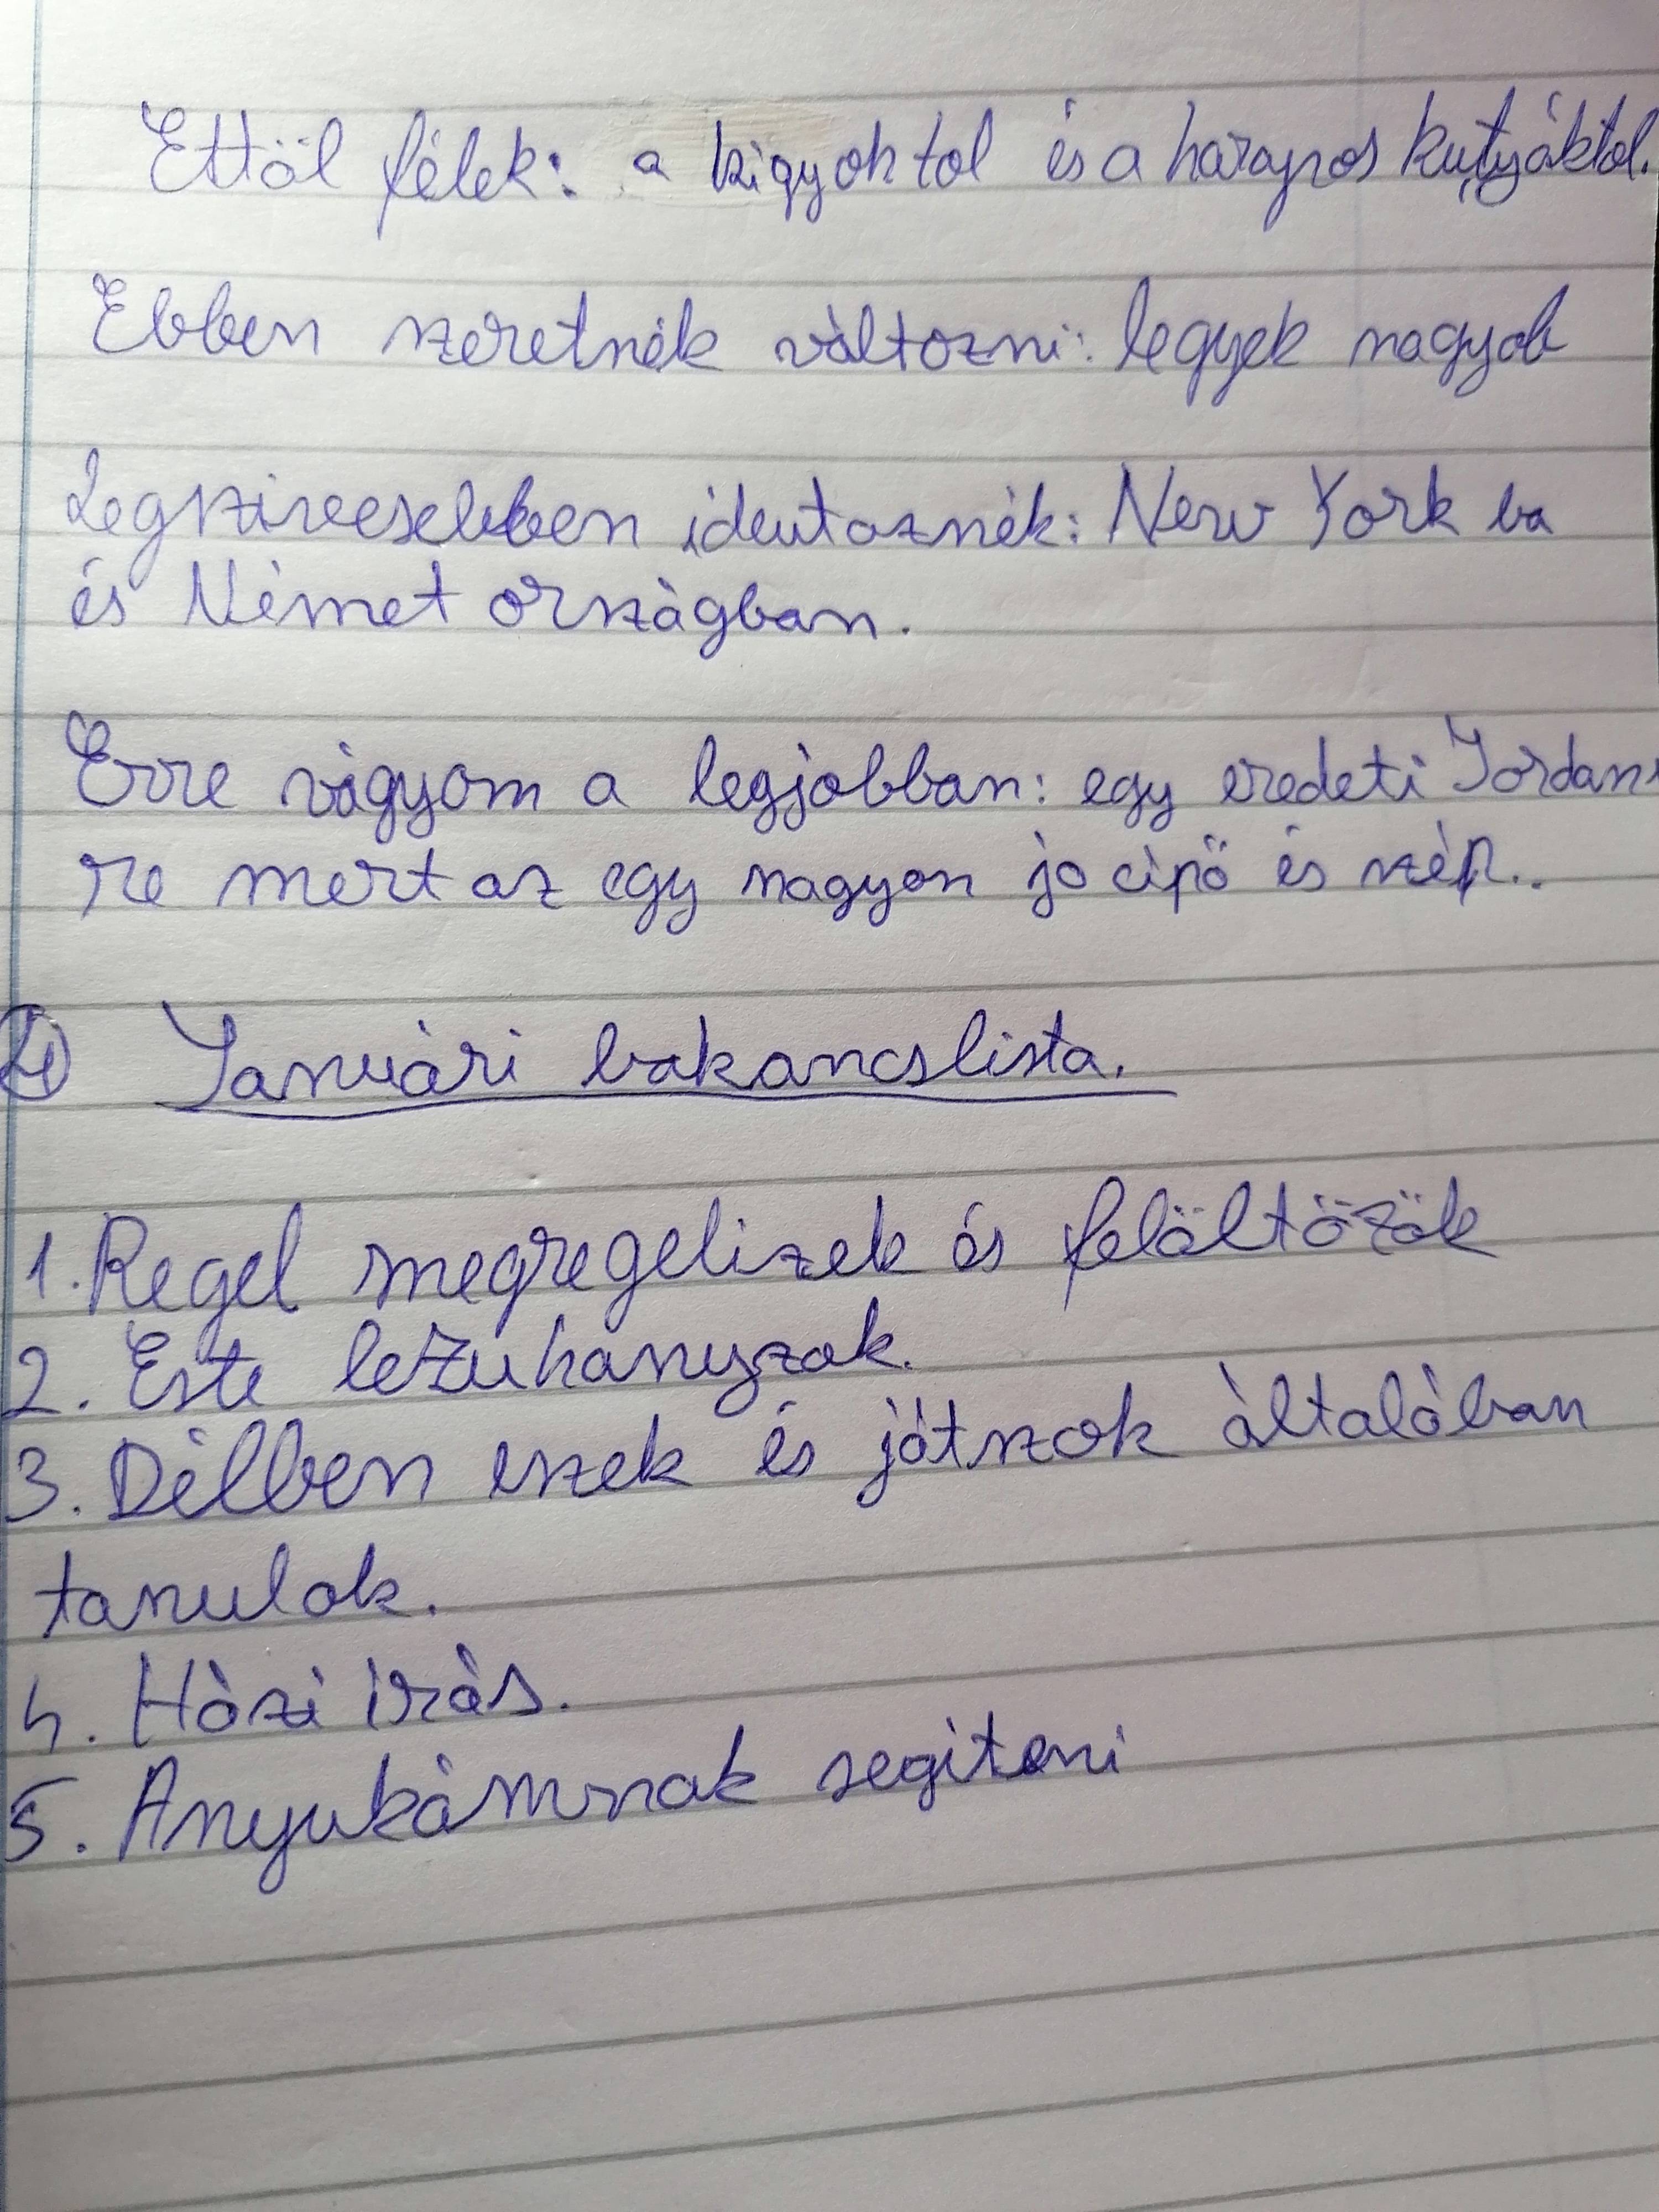 Ettöl félek: a kigyoktol és a harapos kutyáktol.
Ebben szeretnék változni: legyek nagyob
Legszivesebben ideutaznék: New York ba
és Német országban.
Erre vágyom a legjobban: egy eredeti Jordan
re mert az egy nagyon jo cipö és szép..
Januári bakancslista.
1. Regel megregelizek és felöltözök
2. Este lezuhanyzok.
3. Délben eszek és játszok általában
tanulok.
4. Házi irás.
5. Anyukámnak segiteni